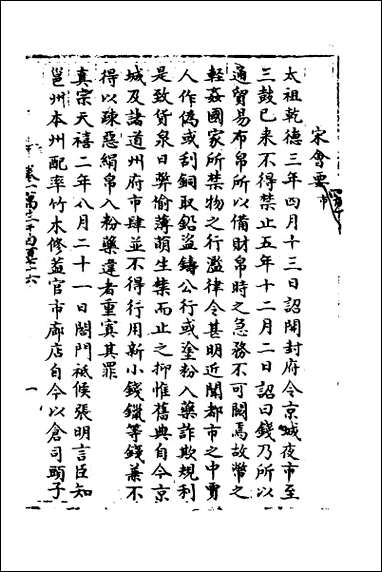 宋會要 市
太祖乾德三年四月十三日詔開封府令京城夜市至
三鼓已来不得禁止五年十二月二日詔曰錢乃所以
通貿易布帛所以備財帛時之急務不可闕焉故幣之
輕姦國家所禁物之行濫律令甚明近聞都市之中賈
人作偽或刮銅取鉛盜鑄公行或塗粉入藥詐欺規利
是致貨泉日弊偷薄萌生禁而止之抑惟舊典自今京
城及諸道州府市肆並不得行用新小錢鑞等錢兼不
得以疎惡絹帛入粉藥違者重寘其罪
真宗天禧二年八月二十一日閤門祗候張明言臣知
邕州本州配率竹木修蓋官市廊店自今以倉司頭子
卷一萬三千四百
一